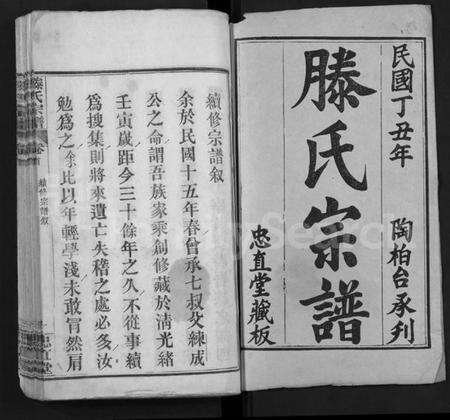 民國丁丑年
陶柏台承刋
滕氏宗譜
忠直堂藏板
續修宗譜叙
余於民國十五年春曾承七叔父練成
公之命謂吾族家乘創修藏於清光緒
壬寅歲距今三十餘年之久不從事續
為搜集則將來遺亡失稽之處必多汝
勉為之余比以年輕學淺未敢冒然肩
滕氏宗譜
卷首
續修宗譜叙
忠直堂